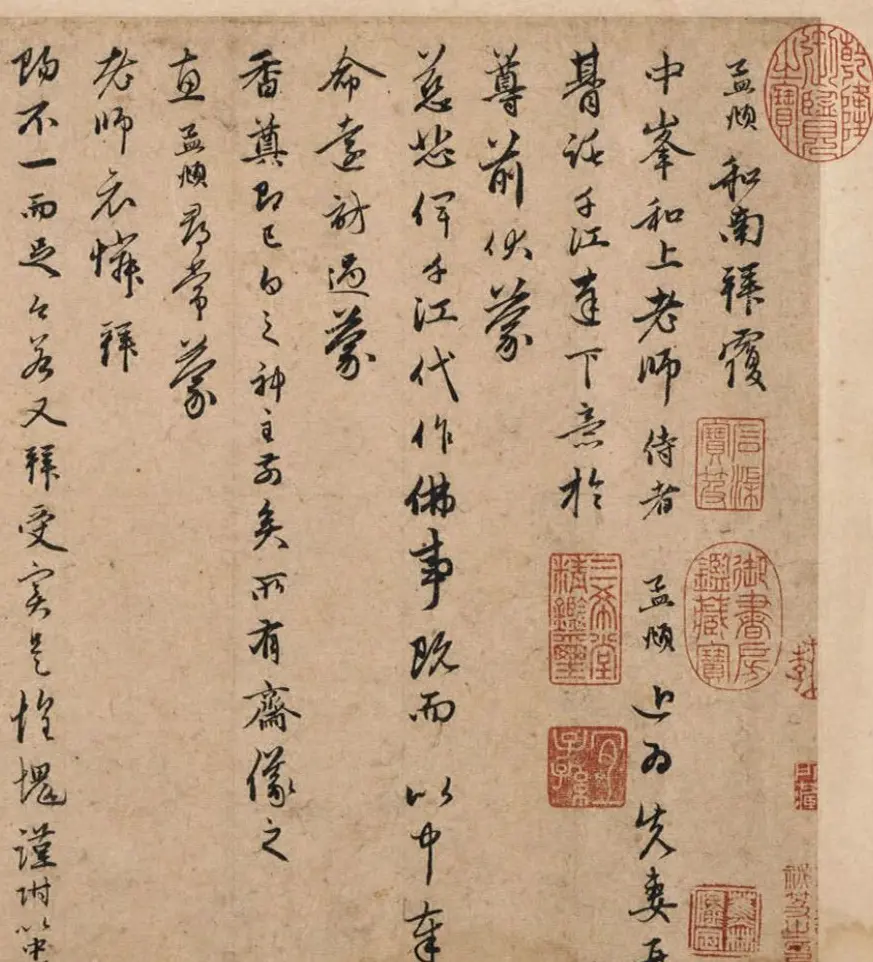 孟頫和南拜覆
中峯和上老師侍者 孟頫近為先妻再
朞託千江奉下意於
尊前伏蒙
慈悲俾千江代作佛事既而以中奉
命遠訪過蒙
香奠即已白之神主前矣所有齋儀之
直孟頫尋常蒙
老師哀憐拜
賜不一而足今若又拜受實是惶愧謹附以中
乾隆御覽之寶
石渠寶笈
御書房鑑藏寶
三希堂精鑑璽
宜子孫